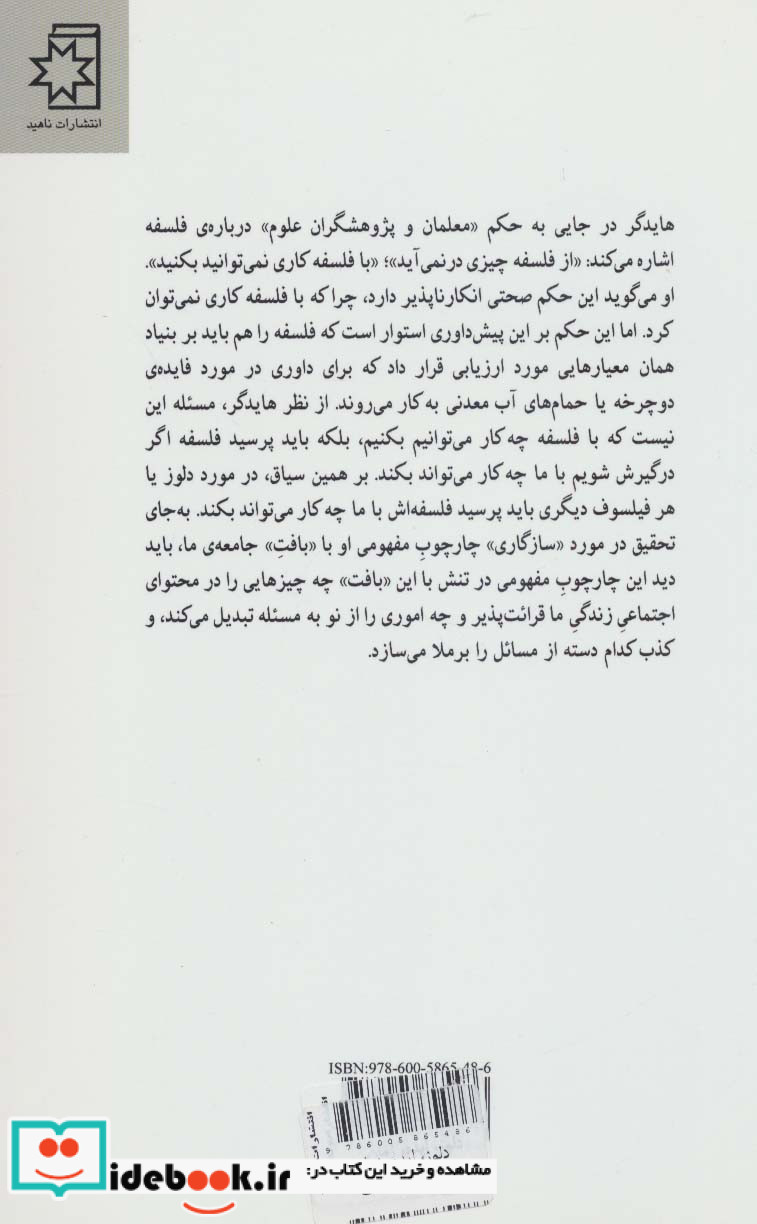 انتشارات ناهید
هایدگر در جایی به حکم «معلمان و پژوهشگران علوم» درباره‌ی فلسفه
اشاره می‌کند: «از فلسفه چیزی درنمی‌آید»؛ «با فلسفه کاری نمی‌توانید بکنید».
او می‌گوید این حکم صحتی انکارناپذیر دارد، چرا که با فلسفه کاری نمی‌توان
کرد. اما این حکم بر این پیش‌داوری استوار است که فلسفه را هم باید بر بنیاد
همان معیارهایی مورد ارزیابی قرار داد که برای داوری در مورد فایده‌ی
دوچرخه یا حمام‌های آب معدنی به کار می‌روند. از نظر هایدگر، مسئله این
نیست که با فلسفه چه کار می‌توانیم بکنیم، بلکه باید پرسید فلسفه اگر
درگیرش شویم با ما چه کار می‌تواند بکند. بر همین سیاق، در مورد دلوز یا
هر فیلسوف دیگری باید پرسید فلسفه‌اش با ما چه کار می‌تواند بکند. به‌جای
تحقیق در مورد «سازگاری» چارچوبِ مفهومی او با «بافتِ» جامعه‌ی ما، باید
دید این چارچوبِ مفهومی در تنش با این «بافت» چه چیزهایی را در محتوای
اجتماعیِ زندگیِ ما قرائت‌پذیر و چه اموری را از نو به مسئله تبدیل می‌کند، و
کذب کدام دسته از مسائل را برملا می‌سازد.
ISBN:978-600-5865-48-6
9 786005 865486
مشاهده و خرید این کتاب در:
idebook.ir